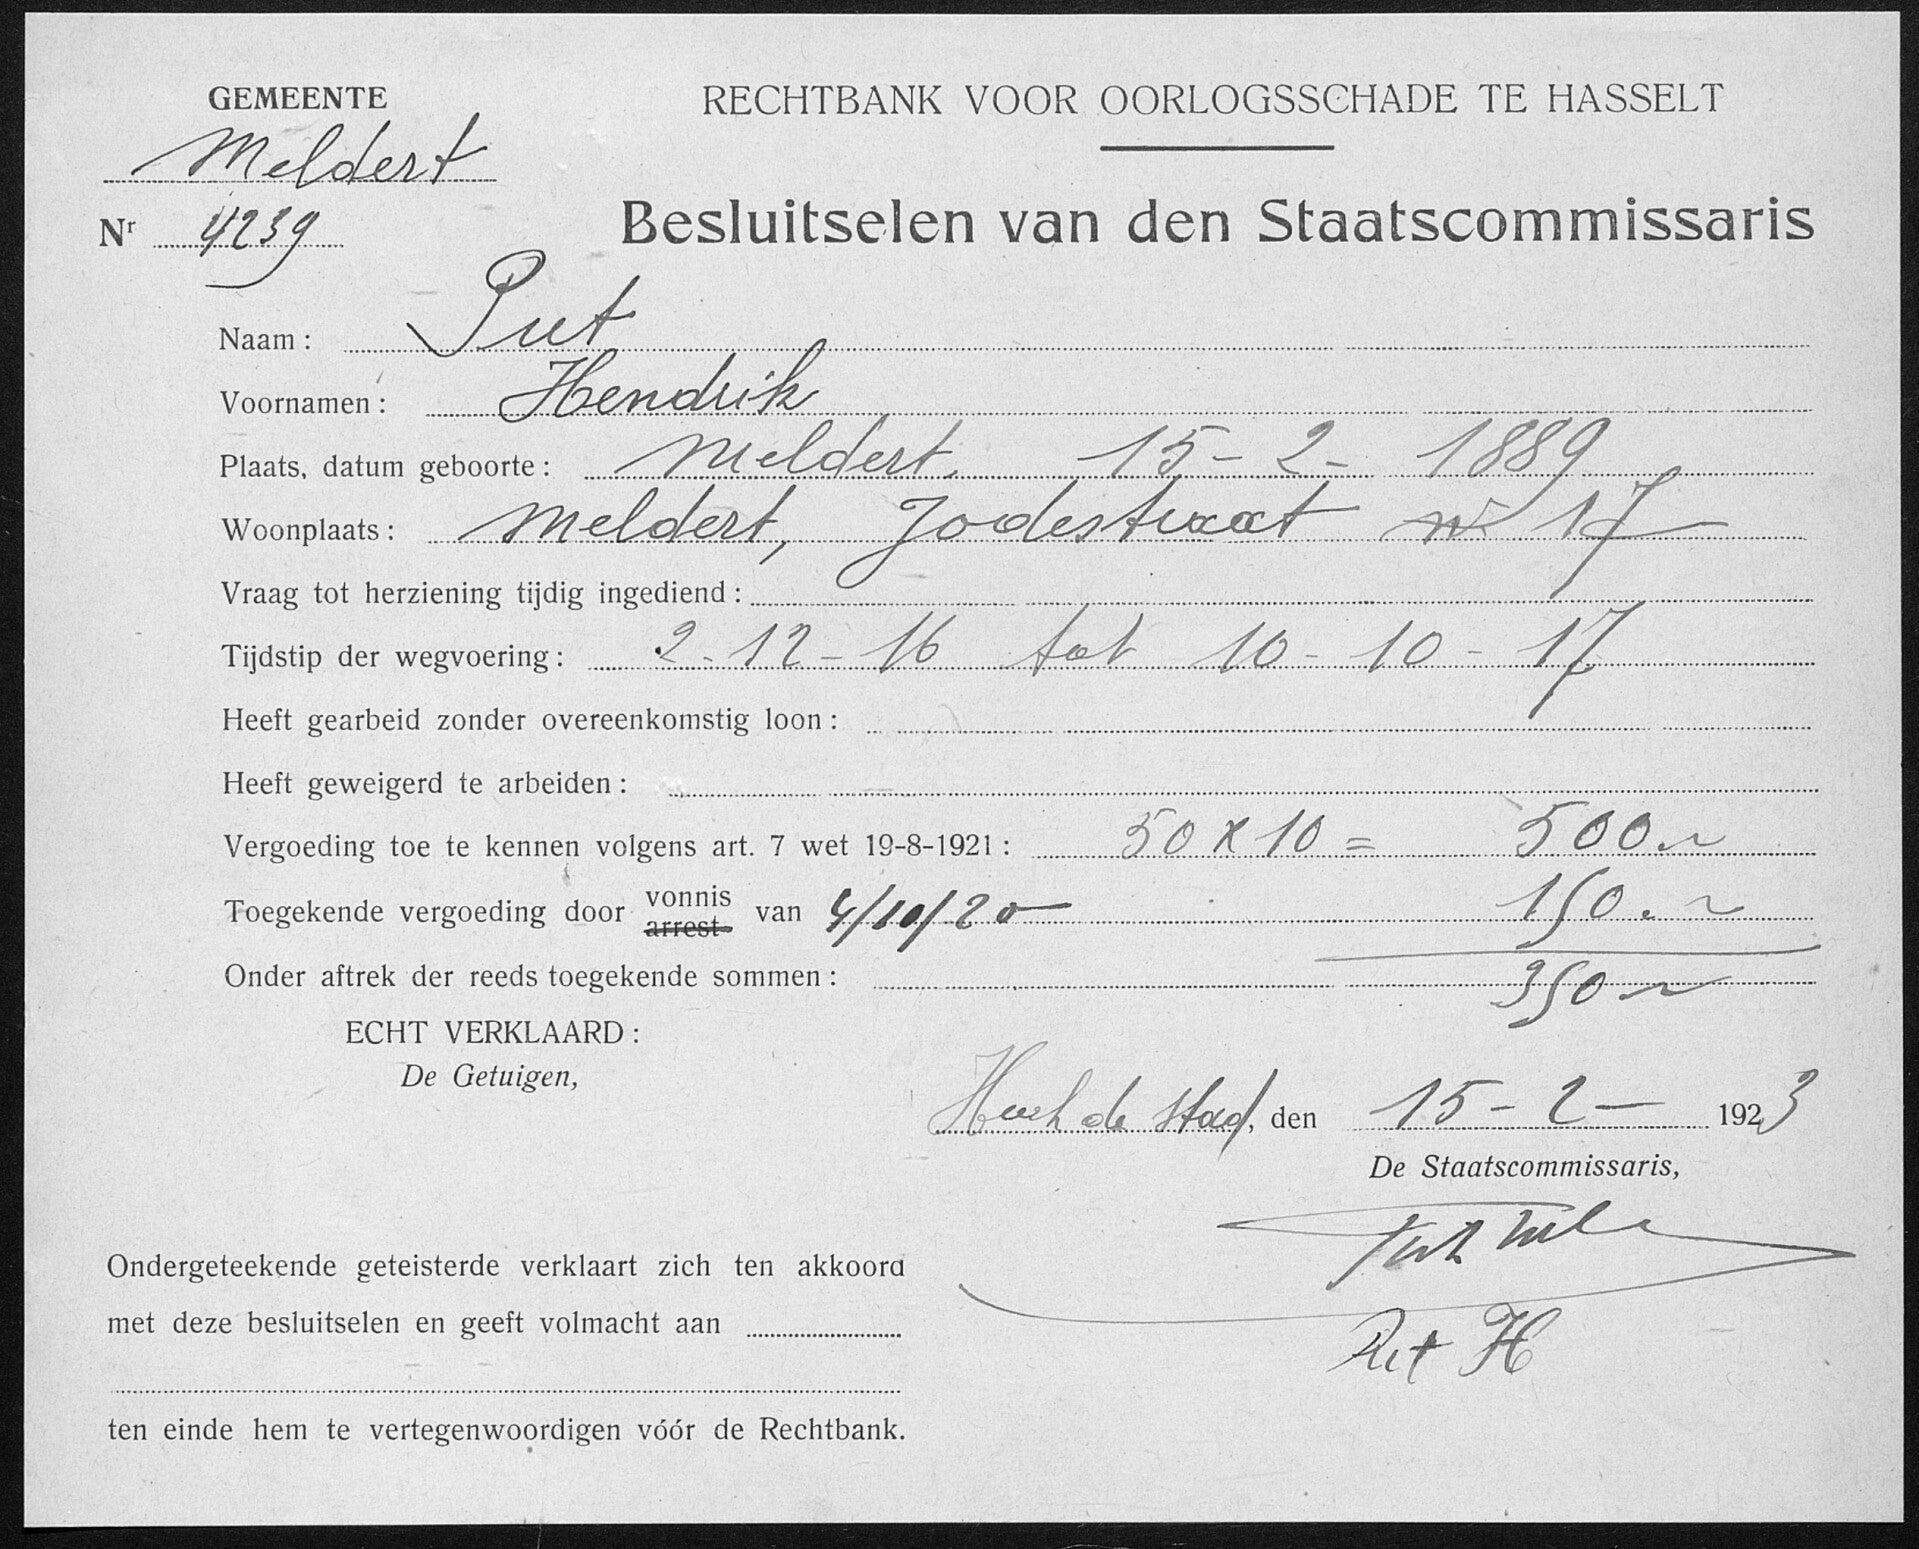 GEMEENTE
Meldert
Nr 4239
RECHTBANK VOOR OORLOGSSCHADE TE HASSELT
Besluitselen van den Staatscommissaris
Naam : Put
Voornamen : Hendrik
Plaats, datum geboorte : Meldert, 15 - 2 - 1889
Woonplaats : Meldert, Jodestraat nr 17
Vraag tot herziening tijdig ingediend :
Tijdstip der wegvoering : 2 - 12 - 16 tot 10 - 10 - 17
Heeft gearbeid zonder overeenkomstig loon :
Heeft geweigerd te arbeiden :
Vergoeding toe te kennen volgens art. 7 wet 19-8-1921 : 50 x 10 = 500.~
Toegekende vergoeding door vonnis arrest van 4/10/20 150.~
Onder aftrek der reeds toegekende sommen : 350 ~
ECHT VERKLAARD :
De Getuigen,
Herk de Stad, den 15 - 2 - 1923
De Staatscommissaris,
Ondergeteekende geteisterde verklaart zich ten akkoord
met deze besluitselen en geeft volmacht aan
ten einde hem te vertegenwoordigen vóór de Rechtbank.
Put H